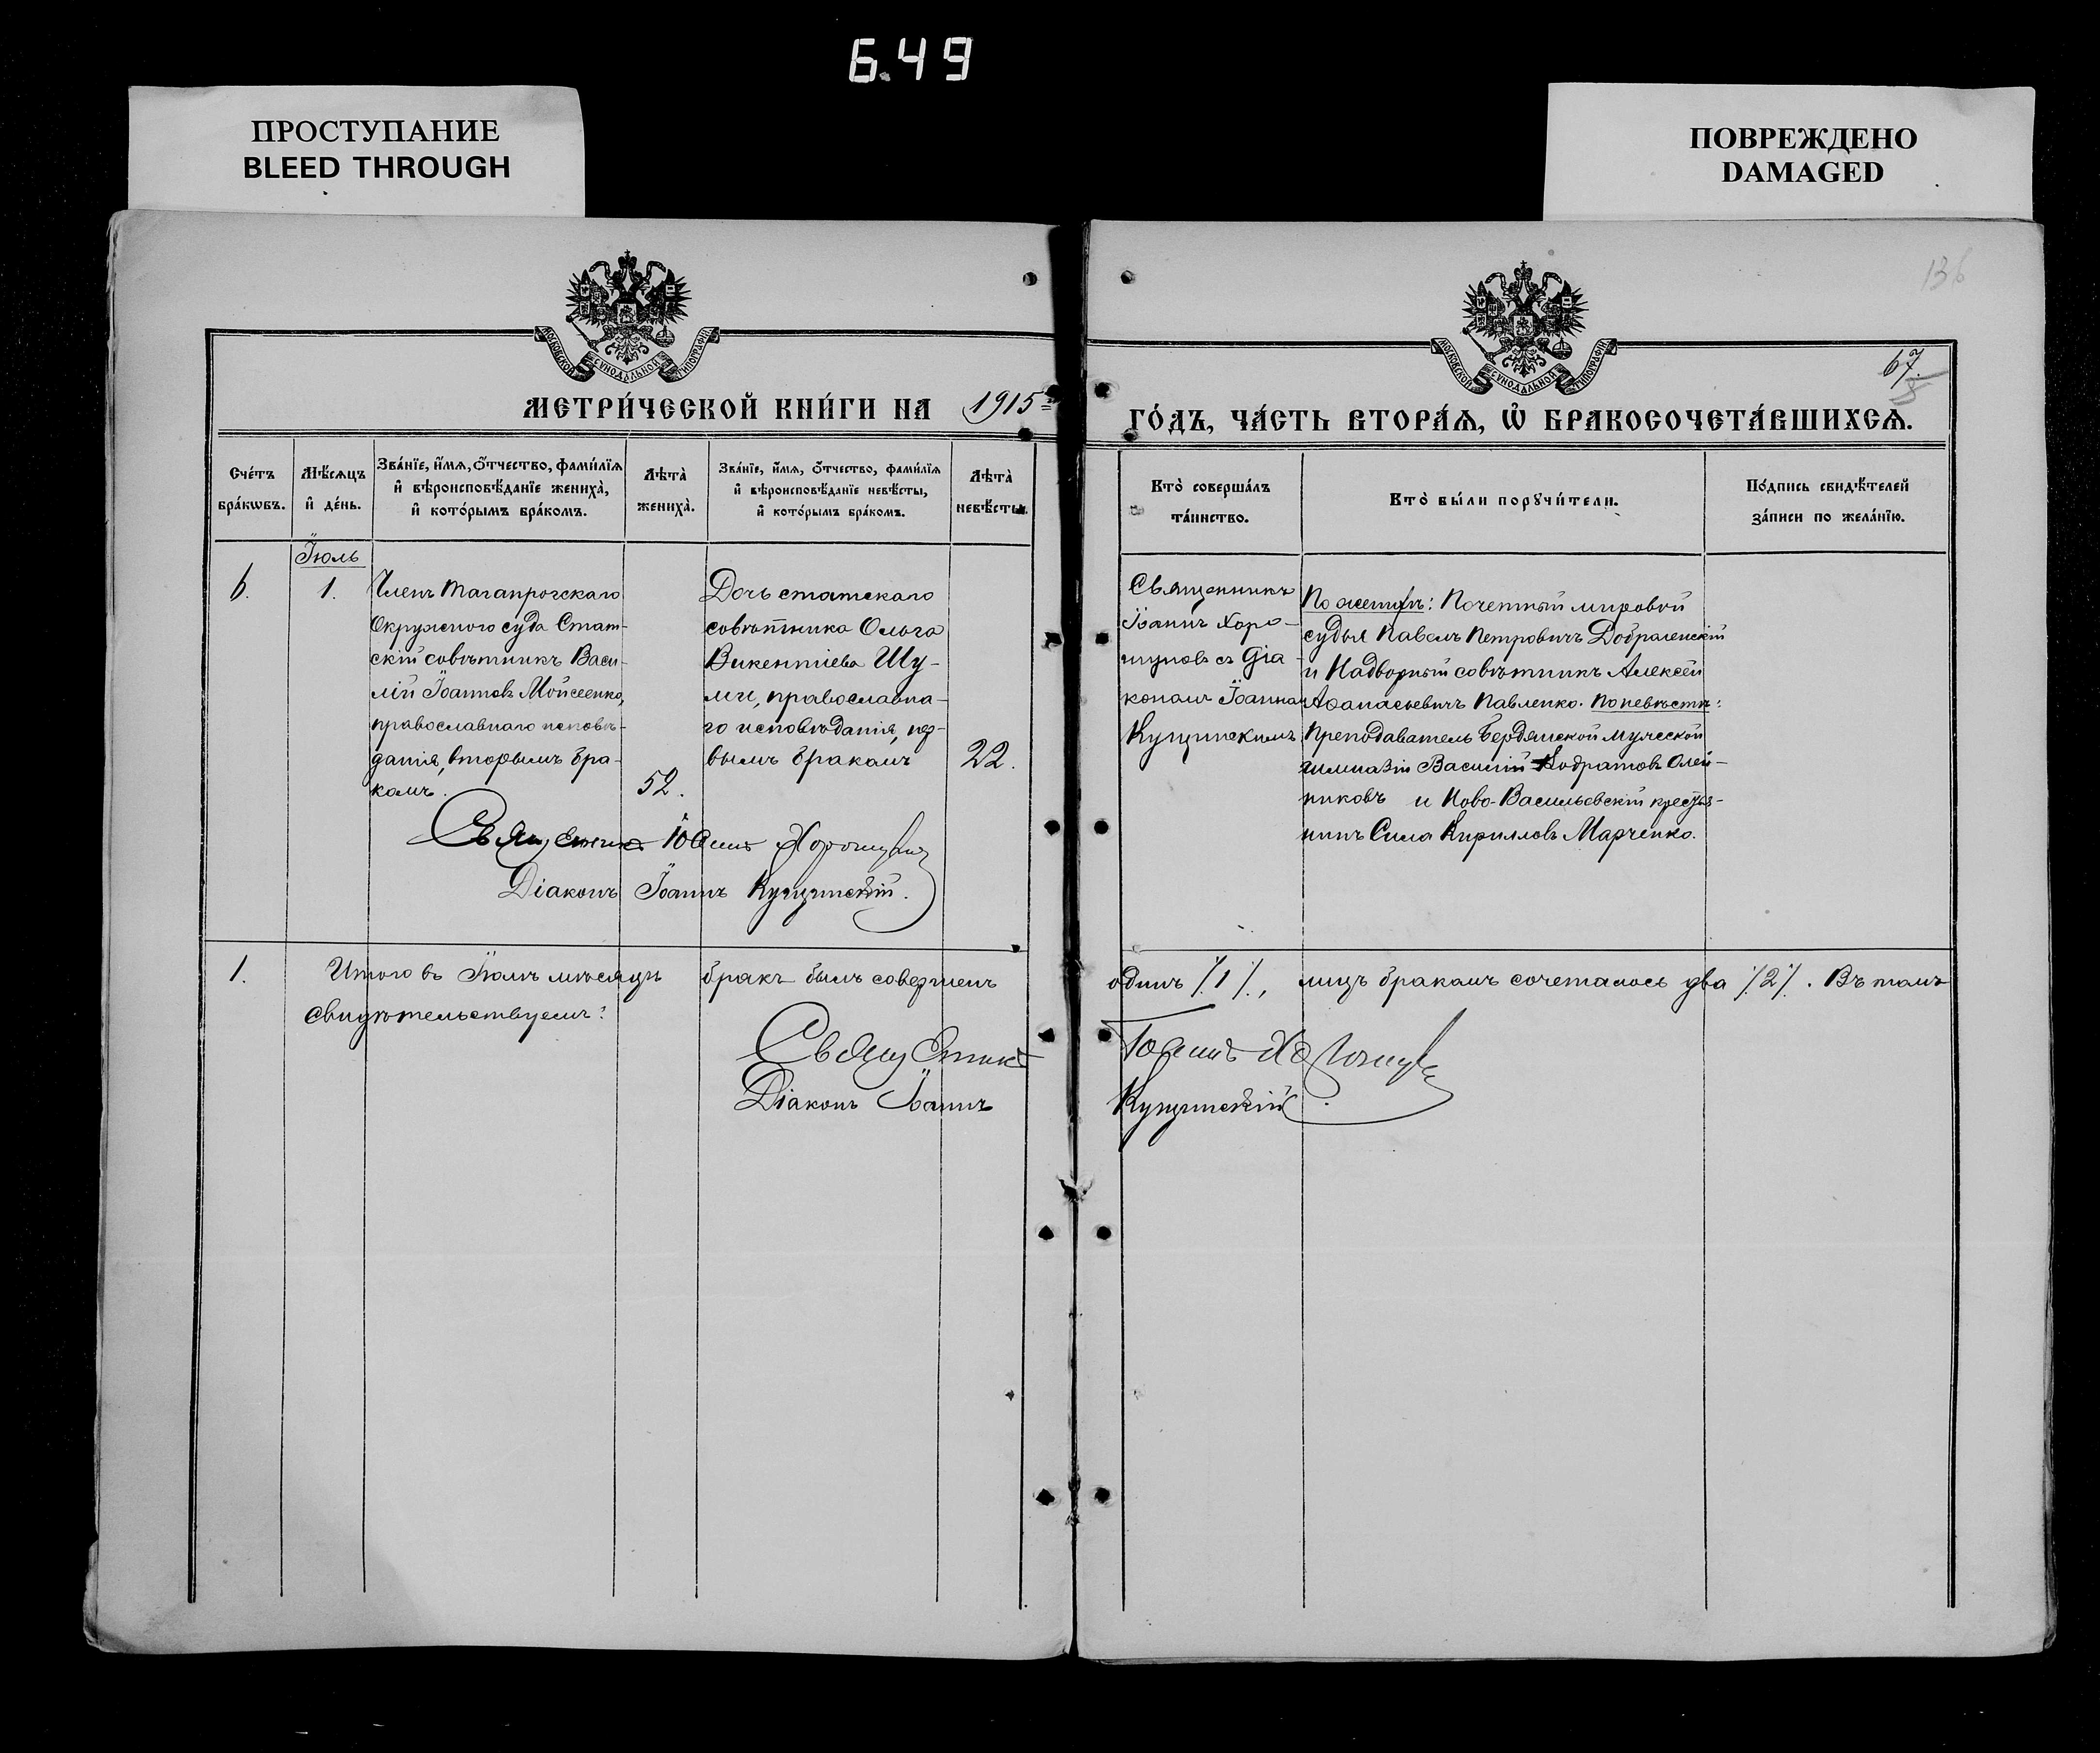 6.49
ПРОСТУПАНИЕ
BLEED THROUGH
ПОВРЕЖДЕНО
DAMAGED
136
МОСКОВСКОЙ СѴНОДАЛЬНОЙ ТИПОГРАФІИ
МОСКОВСКОЙ СѴНОДАЛЬНОЙ ТИПОГРАФІИ
67.
МЕТРИ́ЧЕСКОЙ КНИ́ГИ НА 1915
ГО́ДЪ, ЧА́СТЬ ВТОРА́Ѧ, Ѡ БРАКОСОЧЕТА́ВШИХСѦ.
Сче́тъ
бра́кѡвъ.
Мѣ́сѧцъ
и де́нь.
Зва́нїе, и́мѧ, о́тчество, фами́лїѧ
и вѣроисповѣ́данїе жениха̀,
и кото́рымъ бра́комъ.
Лѣта̀
жениха̀.
Зва́нїе, и́мѧ, о́тчество, фами́лїѧ
и вѣроисповѣ́данїе невѣ́сты,
и кото́рымъ бра́комъ.
Лѣта̀
невѣ́сты.
Кто̀ соверша́лъ
та́инство.
Кто̀ бы́ли порꙋчи́тели.
По́дпись свидѣ́телей
за́писи по жела́нїю.
Іюль
6.
1.
Членъ Таганрогскаго
Окружного суда Стат-
скій совѣтникъ Васи-
лій Іоанновъ Мойсеенко,
православнаго исповѣ-
данія, вторымъ бра-
комъ.
52.
Дочь статскаго
совѣтника Ольга
Викентіева Шу-
ле, православна-
го исповѣданія, пер-
вымъ бракомъ
22.
Священникъ
Іоаннъ Хоро-
шуновъ съ діа-
кономъ Іоанномъ
Кущинскимъ
По женихѣ: Почетный мировой
судья Павелъ Петровичъ
и Надворный совѣтникъ Алексѣй
Аѳанасьевичъ Павленко. По невѣстѣ:
Преподаватель Бердянской мужской
гимназіи Василій Кодратовъ Олей-
никовъ и Ново-Васильевскій крестья-
нинъ Сила Кирилловъ Марченко.
Священникъ Іоаннъ Хорошуновъ
Діаконъ Іоаннъ Кущинскій.
1.
Итого въ Іюлѣ мѣсяцѣ бракъ былъ совершенъ
одинъ /1/, лицъ бракомъ сочеталось два /2/. Въ томъ
свидѣтельствуемъ:
Священникъ Іоаннъ Хорошуновъ
Діаконъ Іоаннъ Кущинскій.